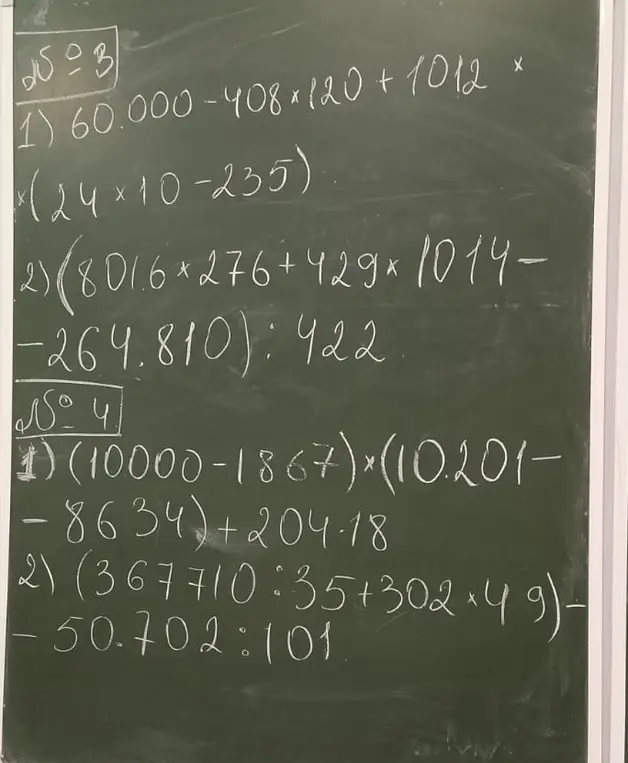 №3
1) 60.000-408×120+1012 ×
×(24×10-235)
2) (8016×276+429×1014-
-264.810):422
№4
1) (10000-1867)×(10.201-
-8634)+204·18
2) (367710:35+302×49)-
-50.702:101